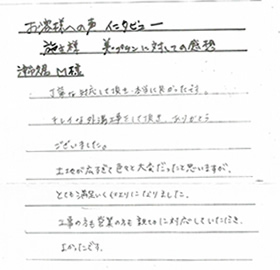 お客様への声 インタビュー
施主様 美のプランに対しての感想
M様
丁寧な対応して頂き、本当に良かったです。
キレイな外溝工事して頂き ありがとう
ございました。
土地が広すぎて色々と大変だったと思いますが、
とても満足いく仕上りになりました。
工事の方も営業の方も 親切に対応していただき、
よかったです。